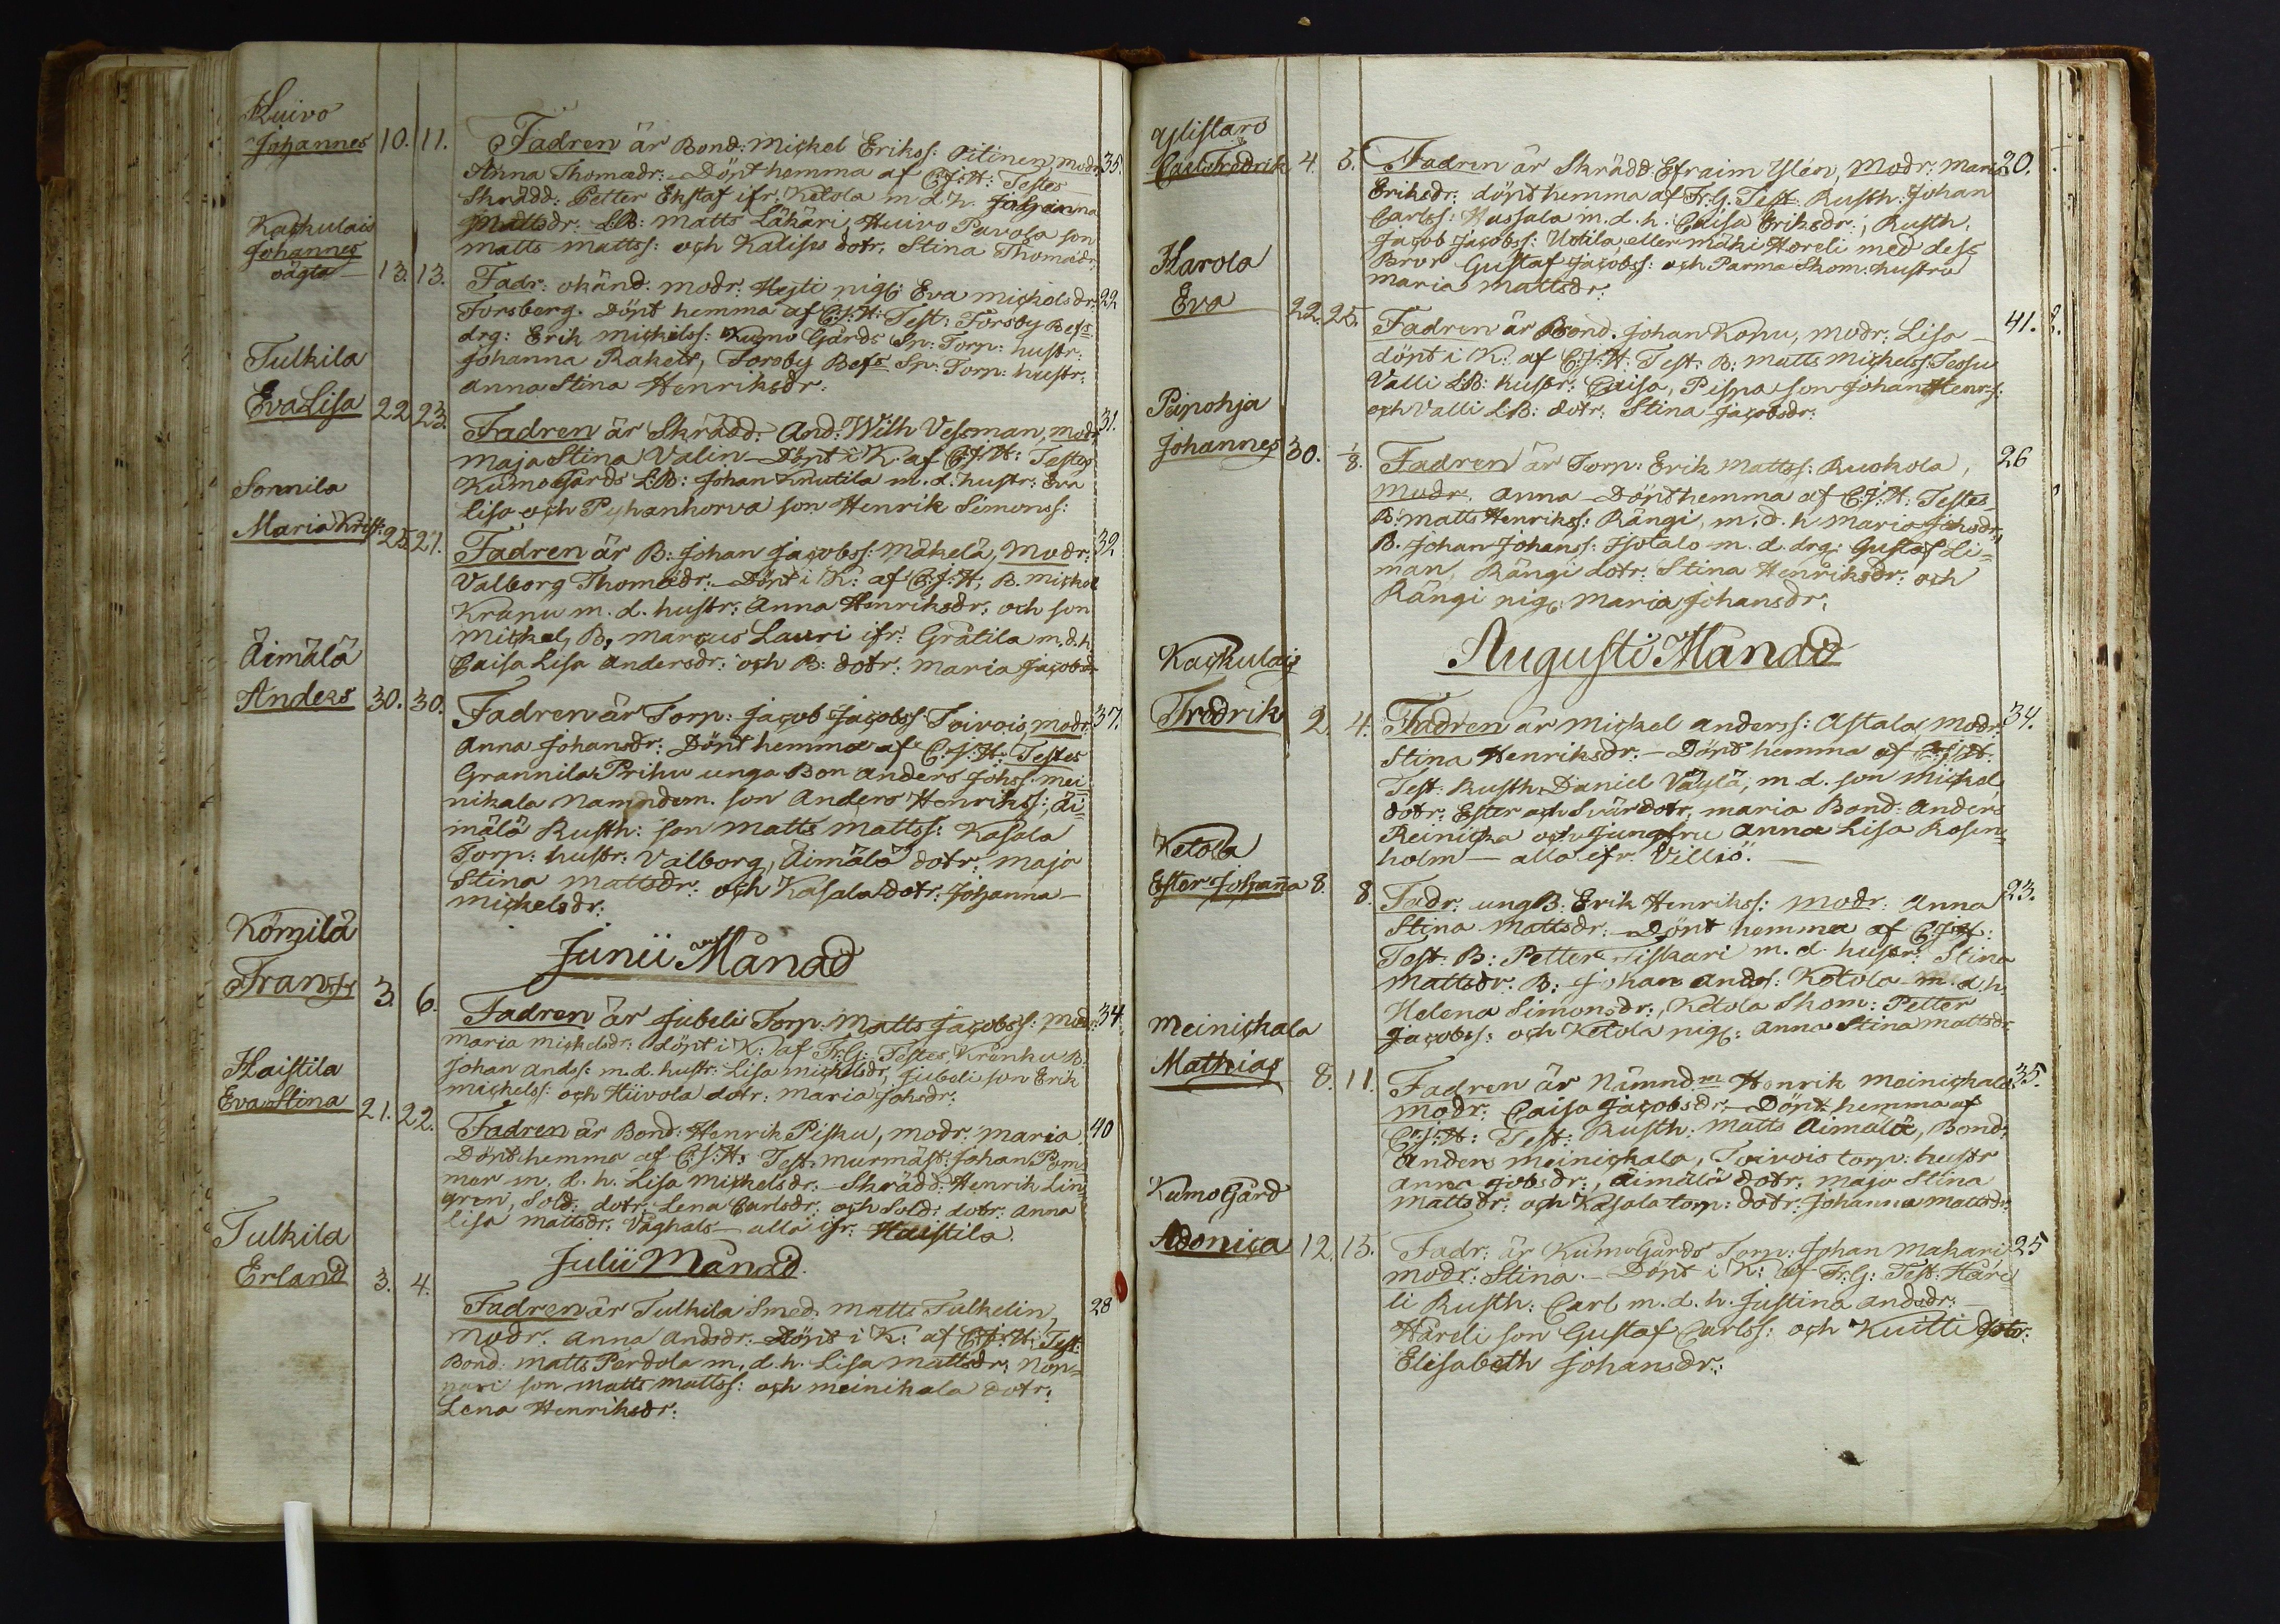 Huivo
Johannes 10. 11. Fadren är Bond: Michel Erikss: Pilinen, modr 35.
Anna Thomædr: Döpt hemma af C.J.H: Testes
Skrädd: Petter Ekstaf ifr: Ketola m d. h. Johanna
Mattsdr. L.B: Matts Läkäri, Huivo Pavola son
Matts Mattss: och Kalises dotr. Stina Thomædr.
Kackulais
Johannes
oägta 13. 13. Fadr: okänd. modr: Hejti pig: Eva Michelsdr: 22
Forsberg. Döpt hemma af C.J.H: Test: Forsby Bess
drg: Erik Michelss: Kumo Gårds Sp: Torp: hustr:
Johanna Raket, Forsby Bess Sp: Torp: hustr:
Anna Stina Henriksdr:
Tulkila
Eva Lisa 22 23. Fadren är Skrädd: And: Wilh Vessman, modr 31.
Maja Stina Valin Döpt i K. af C.J.H: Testes
Kumo Gårds L:B: Johan Knutila m. d. hustr: Eva
Lisa och Pyhankorva son Henrik Simonss:
Sonnila
Maria Krist: 25. 27. Fadren är B: Johan Jacobss: Mäkelä, Modr: 32
Valborg Thomædr: Döpt i K: af C:J:H; B. Michel
Krapu m. d. hustr: Anna Henriksdr: och son
Michel, B, Marcus Lauri ifr: Gråtila m. d. h.
Caisa Lisa Andersdr: och B: dotr: Maria Jacobsd
Äimälä
Anders 30. 30. Fadren är Torp: Jacob Jacobss Toivois, modr: 37.
Anna Johansdr: Döpt hemma af C.J.H: Testes
Grannila Prihu unga Bon Anders Johss: Mei-
nikala Nämndem. son Anders Henrikss:, Äi-
mälä Rusth: son Matts Mattss: Kasala
Torp: hustr: Valborg, Äimälä dotr: Maja
Stina Mattsdr: och Kasala dotr: Johanna
Michelsdr:
Junii Månad
Kömilä
Frants 3. 6. Fadren är Jubeli Torp: Matts Jacobss: modr: 34
Maria Michelsdr: döpt i K: af Fr:G: Testes, Krånku B.
Johan Ands: m. d. hustr: Lisa Michelsdr, Jubeli son Erik
Michelss: och Hiivola dotr: Maria Johsdr:
Haistila
Eva Stina 21. 22. Fadren är Bond: Henrik Pisku, modr: Maria 40
Döpt hemma af C:J:H: Test. Murmäst: Johan Pom-
mer m. d. h. Lisa Michelsdr: Skrädd: Henrik Lin-
gren, Sold: dotr: Lena Carlsdr: och Sold: dotr: Anna
Lisa Mattsdr. Våghals alla ifr. Haistila.
Julii Månad.
Tulkila
Erland 3. 4. Fadren är Tulkila Smed. Matts Tulkelin, 28
Modr. Anna Andsdr. Döpt i K: af C:J:H: Test:
Bond: Matts Perdola m. d. h. Lisa Mattsdr: Non-
nari son Matts Mattss: och Meinikala dotr:
Lena Henriksdr:
Ylistaro
Carl Fredrik 4. 5. Fadren är Skrädd Efraim Ylén, Modr: Maria 20.
Eriksdr: döpt hemma af Fr:G. Test: Rusth: Johan
Carlss: Hassala m. d. h. Caisa Eriksdr:, Rusth.
Jacob Jacobss: Uotila eller Mäki Horeli med dess
Bror Gustaf Jacobss: och Parma Skom. hustru
Maria Mattsdr:
Harola
Eva 22. 25. Fadren är Bond. Johan Kopu, modr: Lisa 41. 2.
döpt i K: af C:J:H: Test: B: Matts Michelss: Tessu
Valli L.B: hustr: Caisa, Pispa son Johan Henrs:
och Valli L:B: dotr. Stina Jacobsdr:
Paipohja
Johannes 30. 1/8. Fadren är Torp: Erik Mattss: Ruokola, 26
Modr. Anna Döpt hemma af C:J:H: Testes
B: Matts Henrikss: Rängi, m. d. h Maria Johsdr:,
B. Johan Johanss: Isotalo m. d. drg: Gustaf Li-
man, Rängi dotr: Stina Henriksdr: och
Rängi pig: Maria Johansdr:
Augusti Månad
Kackulais
Fredrik 2. 4. Fadren är Michel Anderss: Astala, modr: 34.
Stina Henriksdr: Döpt hemma af C:J:H.
Test: Rusth. Daniel Väylä, m. d. son Michel
dotr: Ester och Svärdotr, Maria Bond: Anders
Reinicka och Jungfru Anna Lisa Rosen-
holm alla ifr: Villiö.
Ketola
Ester Johanna 8. 8. Fadr: ung B: Erik Henrikss: modr: Anna 23.
Stina Mattsdr: Döpt hemma af C:J:H:
Test: B: Petter Fiskari m. d. hustr: Stina
Mattsdr: B: Johan Ands: Ketola m. d h.
Helena Simonsdr:, Ketola Skom: Petter
Jacobss: och Ketola pig: Anna Stina Mattsdr:
Meinickala
Mathias 8. 11. Fadren är Nämndm Henrik Meinickala 35.
modr: Caisa Jacobsdr. Döpt hemma af
C:J:H: Test: Rusth: Matts Äimälä, Bond:
Anders Meinickala, Toivois torp: hustr
Anna Jobsdr:, Äimälä dotr: Maja Stina
Mattsdr: och Kasala torp: dotr: Johanna Mattsdr:
Kumo Gård
Adonica 12. 15. Fadr: är Kumo Gårds Torp: Johan Makari 25
modr: Stina. Döpt i K: af Fr:G: Test: Häre
li Rusth: Carl m. d. h. Justina Andsdr:
Häreli son Gustaf Carlss: och Kuitti dotr:
Elisabeth Johansdr: